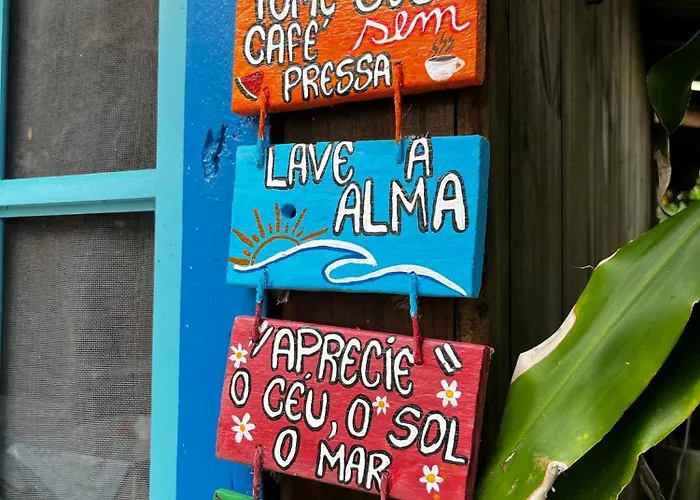 TOME SEU
CAFÉ sem
PRESSA
LAVE A
ALMA
"APRECIE"
O CÉU, O SOL
O MAR